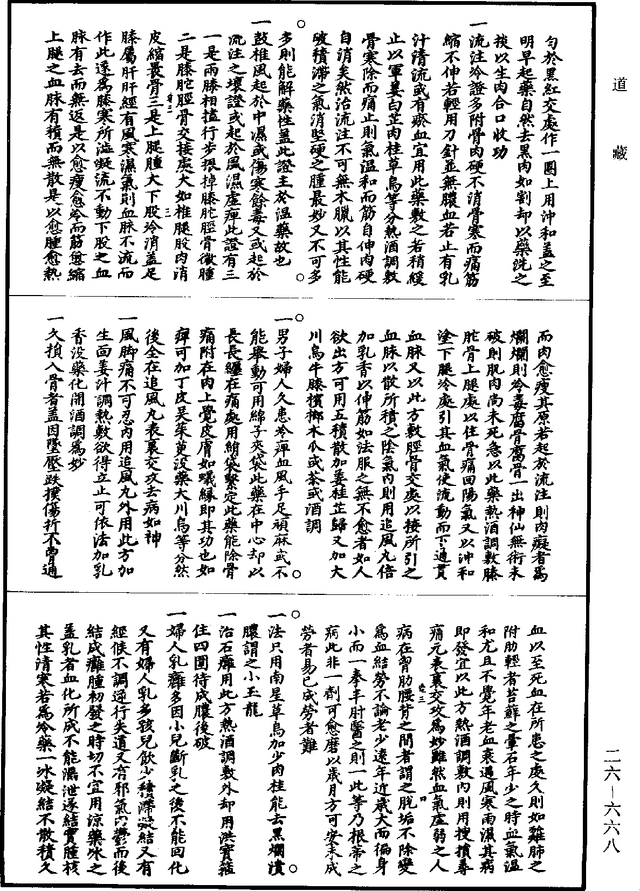 道藏
匀於黑紅交處作一圈上用沖和蓋之至
明早起藥自然去黑肉如割却以藥洗之
挨以生肉合口收功
一流注冷證多附骨肉硬不消骨寒而痛筋
縮不伸若輕用刀針並無膿血若止有乳
汁清流或有瘀血宜用此藥敷之若稍緩
止以軍薑白芷肉桂草烏等分熱酒調敷
骨寒除而痛止則氣溫和而筋自伸肉硬
自消矣然治流注不可無木臘以其性能
破積滯之氣消堅硬之腫最妙又不可多
多則能解藥性蓋此證主於溫藥故也
一鼓椎風起於中濕或傷寒餘毒又或起於
流注之壞證或起於風濕虛痺此證有三
一是兩膝相搕行步振掉膝胻脛骨微腫
二是膝胻脛骨交接處大如椎腿股肉消
皮縮裊骨三是上腿腫大下股冷消蓋足
膝屬肝肝經有風寒濕氣則血脉不流而
作此遂為膝寒所溢凝流不動下股之血
脉有去而無返是以愈瘦愈冷而筋愈縮
上腿之血脉有積而無散是以愈腫愈熱
而肉愈瘦其原若起於流注則肉癡者為
爛爛則冷毒腐骨腐骨一出神仙無術未
破則肌肉尚未死急以此藥熱酒調敷膝
胻骨上腿處以住骨痛回陽氣又以沖和
塗下腿冷處引其血氣使流動而下通貫
血脉又以此方敷脛骨交處以接所引之
血脉以散所積之陰氣內則用追風丸倍
加乳香以伸筋如法服之無不愈者如人
欲出方可用五積散加姜桂芷歸又加大
川烏牛膝檳榔木瓜或茶或酒調
一男子婦人久患冷痺血風手足頑麻或不
能舉動可用綿子夾袋此藥在中心却以
長長纏在痛處用絹袋繫定此藥能除骨
痛附在肉上覺皮膚如蟻緣即其功也如
痺可加丁皮吳茱萸沒藥大川烏等分然
後全在追風丸表裏交攻去病如神
一風脚痛不可忍內用追風丸外用此方加
生面姜汁調熱敷欲得立止可依法加乳
香沒藥化開酒調為妙
一久損入骨者蓋因墜壓跌撲傷折不曾通
血以至死血在所患之處久則如雞肺之
附肋輕者苔蘚之暈石年少之時血氣溫
和尤且不覺年老血衰遇風寒雨濕其病
即發宜以此方熱酒調敷內則用搜損尋
痛元表裏交攻為妙雖然血氣虛弱之人
病在胷肋腰背之間者謂之脫垢不除變
為血結勞不論老少遠年近歲大而徧身
小而一拳半肘醫之則一此等乃根蒂之
病此非一劑可愈磨以歲月方可安李成
勞者易已成勞者難
一法只用南星草烏加少肉桂能去黑爛潰
膿謂之小玉龍
一治石癰用此方熱酒調敷外却用洪寶箍
住四圍待成膿後破
一婦人乳癰多因小兒斷乳之後不能回化
又有婦人乳多孩兒飲少積滯凝結又有
經候不調逆行失道又有邪氣內鬱而後
結成癰腫初發之時切不宜用涼藥冰之
蓋乳者血化所成不能漏泄遂結實腫核
其性清寒若為冷藥一冰凝結不散積久
二六一六六八